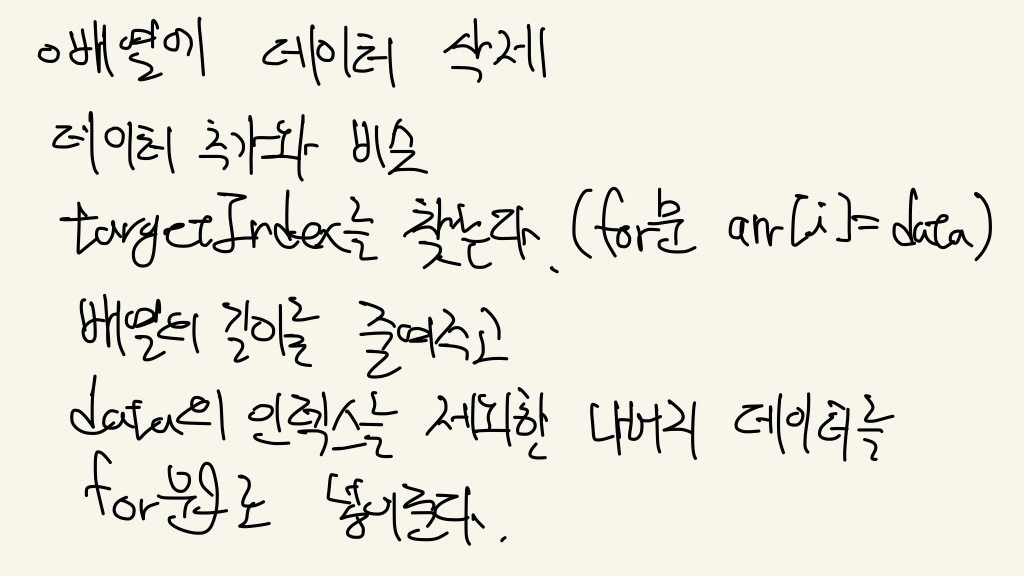 ○배열에 데이터 삭제
데이터 추가와 비슷
targetIndex를 찾는다. (for문 arr[i]=data)
배열의 길이를 줄여주고
data의 인덱스를 제외한 나머지 데이터를
for문으로 넣어준다.